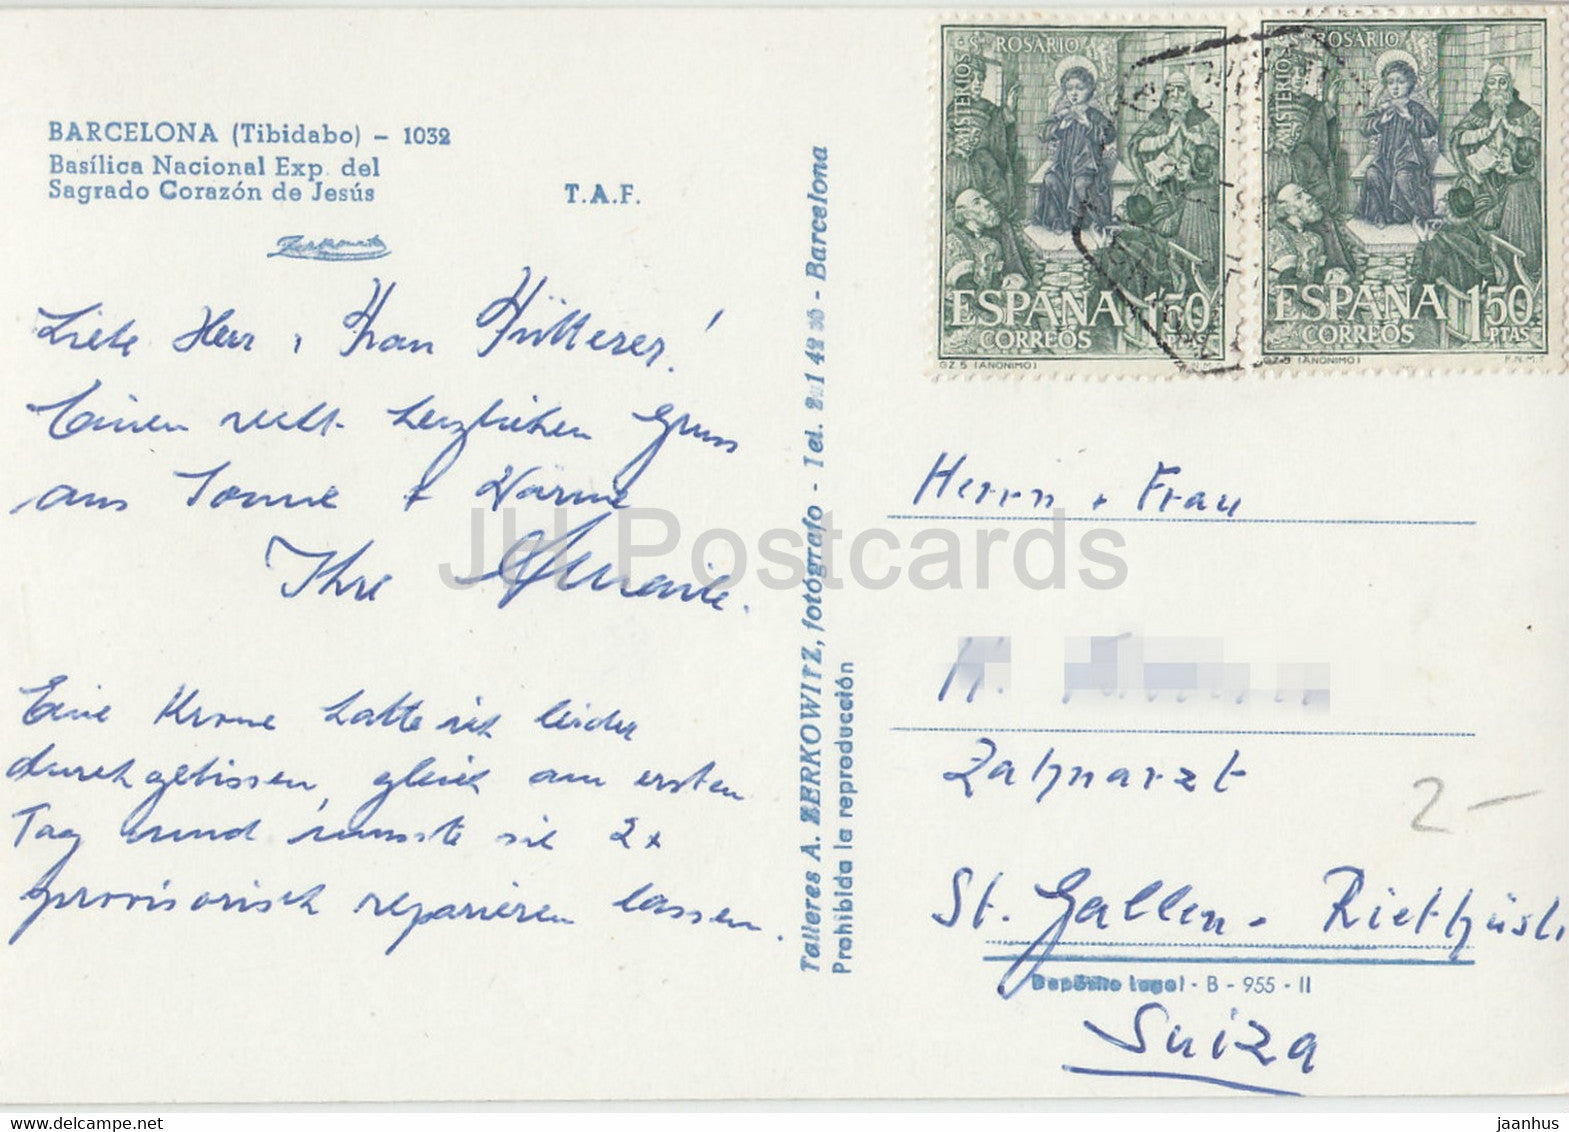 BARCELONA (Tibidabo) - 1032
Basílica Nacional Exp. del
Sagrado Corazón de Jesús
T.A.F.
Zerkowitz
Liebe Herr + Frau
Einen recht herzlichen Gruss
aus Sonne + Wärme
Ihre
Eine Krone hatte ich leider
durchgebissen, gleich am ersten
Tag und musste sie 2x
provisorisch reparieren lassen.
Talleres A. ZERKOWITZ, fotógrafo - Tel. 221 42 30 - Barcelona
Prohibida la reproducción
MISTERIOS Sto ROSARIO
ESPAÑA 1'50
CORREOS PTAS
GZ 5 (ANONIMO) F.N.M.T.
MISTERIOS Sto ROSARIO
ESPAÑA 1'50
CORREOS PTAS
GZ 5 (ANONIMO) F.N.M.T.
Herrn + Frau
H.
Zahnarzt
2-
St. Gallen - Riethüsli
Depósito Legal - B - 955 - II
Suiza
JH Postcards
jaanhus